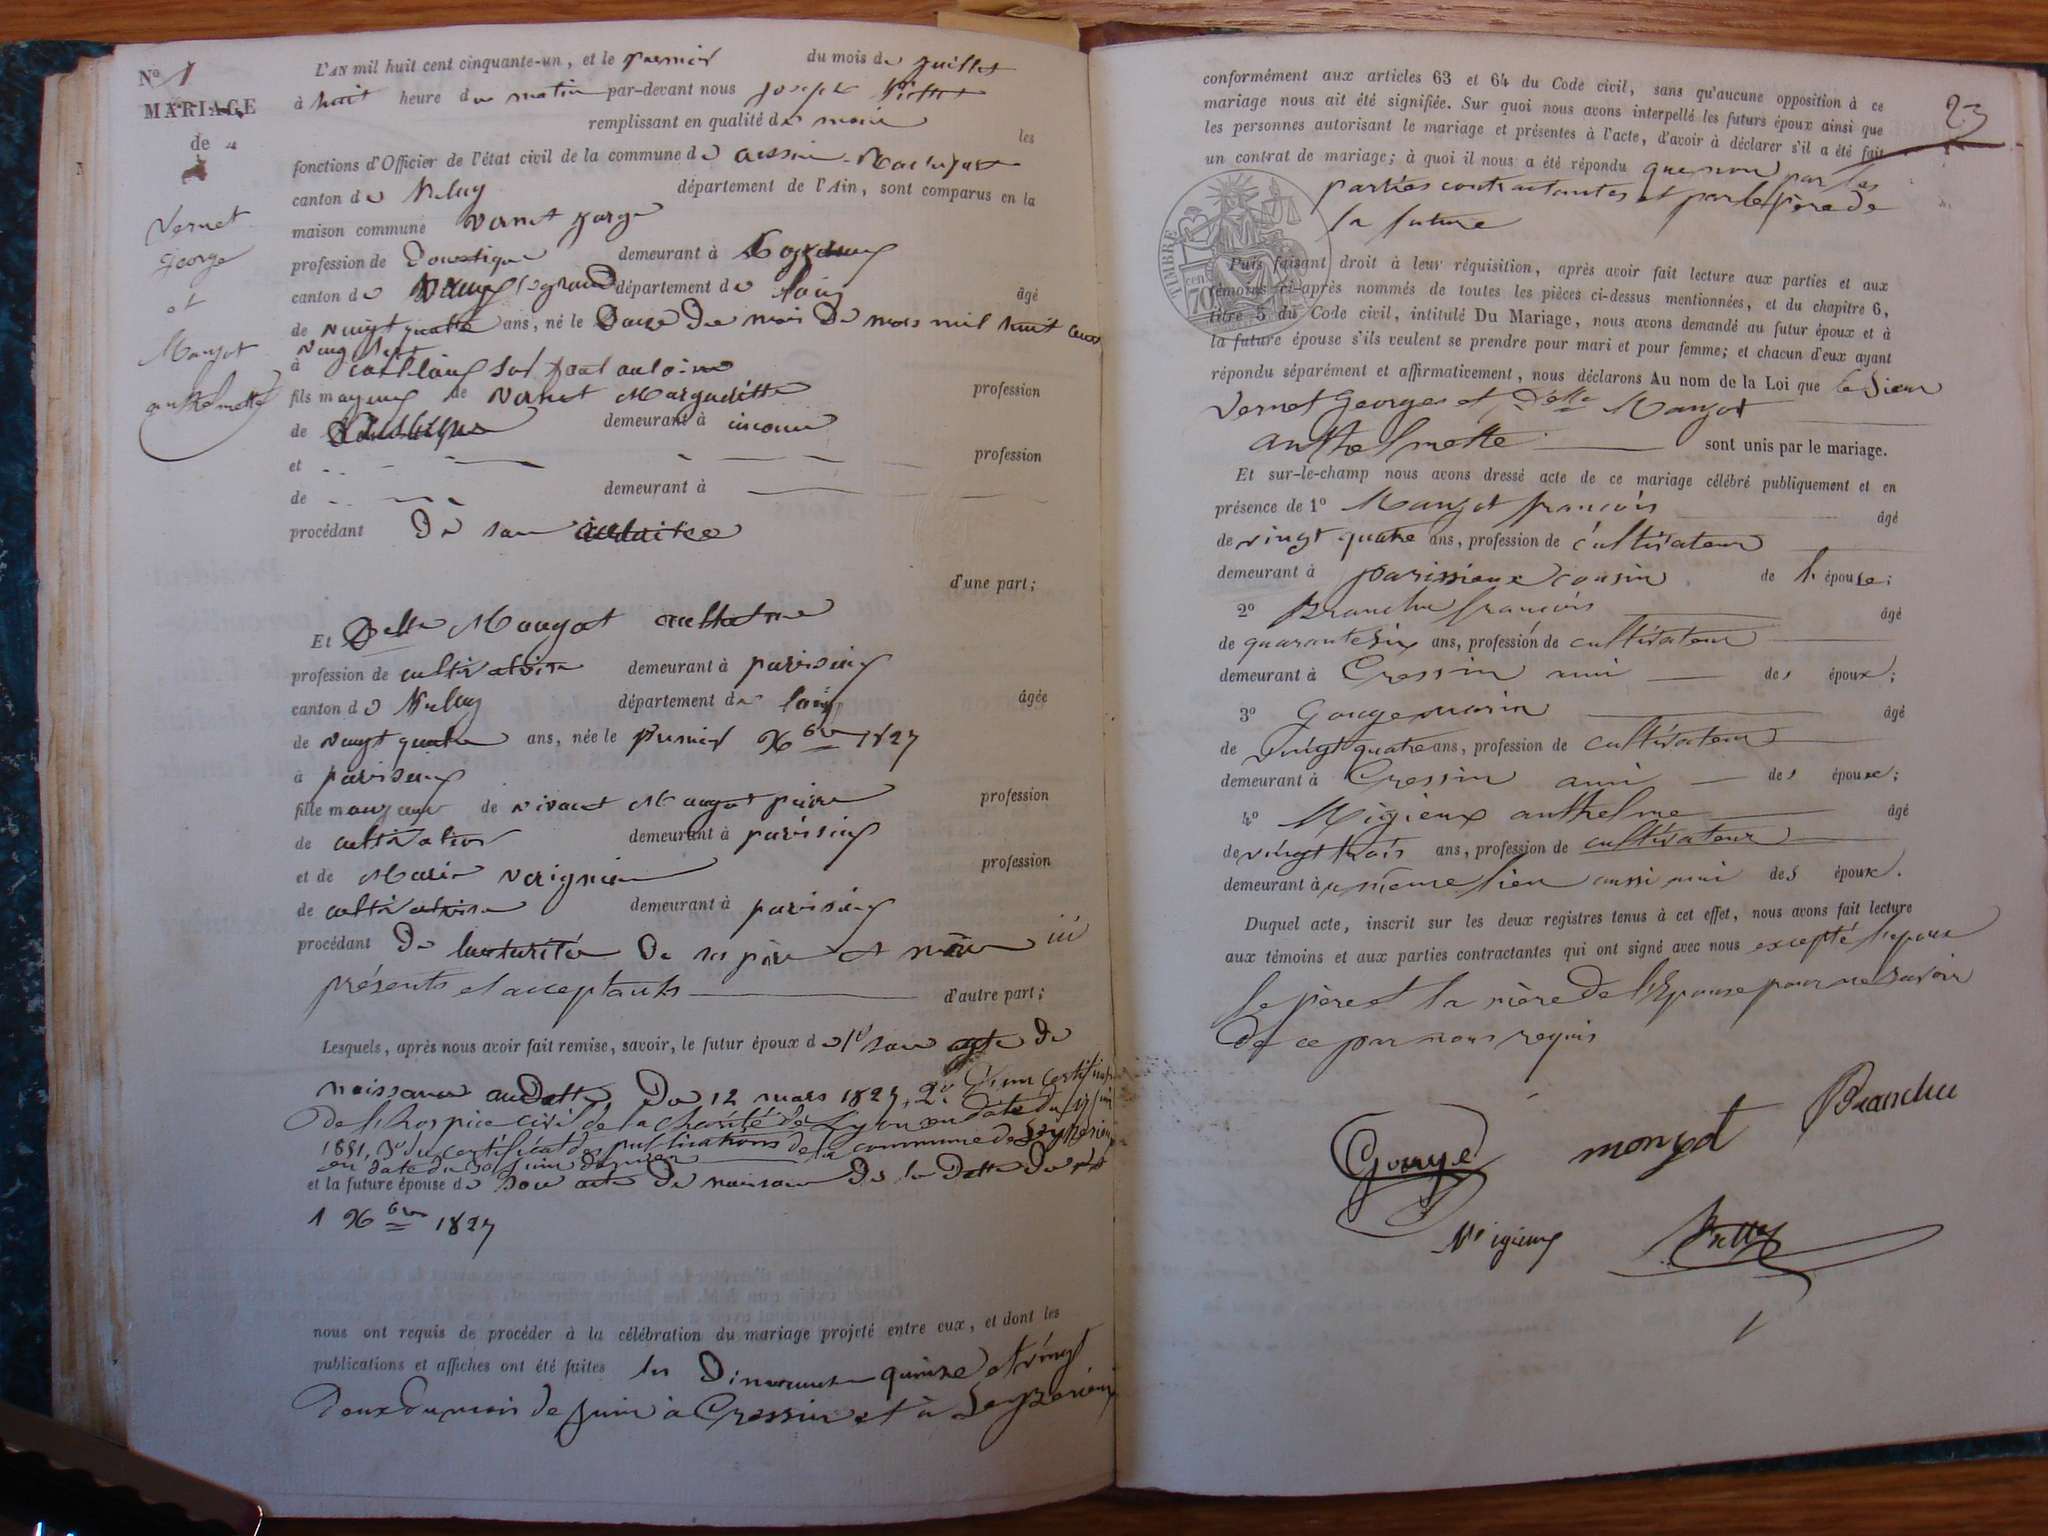 N° 1
MARIAGE
de
Vernet
George
et
Manjot
anthelmette
L'AN mil huit cent cinquante-un, et le premier du mois de juillet
à huit heure du matin par-devant nous joseph
remplissant en qualité de maire les
fonctions d'Officier de l'état civil de la commune de
canton de département de l'Ain, sont comparus en la
maison commune vernet jorge
profession de domestique demeurant à
canton de département de
de vingt quatre ans, né le douze du mois de mars mil huit cent âgé
vingt sept
à
fils mayeur de vernet Margueritte profession
de demeurant à inconu
et profession
de demeurant à
procédant de son
d'une part;
Et Delle Mongot
profession de cultivatrice demeurant à parisieux
canton de département de l'ain âgée
de vingt quatre ans, née le premier X bre 1827
à parisieux
fille mayeure de vivant Mongot pierre profession
de cultivateur demeurant à parisieux
et de Marie profession
de cultivatrice demeurant à parisieux
procédant de l'autorité de ses père et mère ici
présents et acceptants d'autre part;
Lesquels, après nous avoir fait remise, savoir, le futur époux de 1° son acte de
naissance en datte du 12 mars 1827, 2° d'un certificat
de l'hospice civil de la charité de Lyon en date du juin
1851, 3° du certificat des publications de la commune de Leyzerieux
en date du 30 juin dernier
et la future épouse de son acte de naissance de la datte du
1 X bre 1827
nous ont requis de procéder à la célébration du mariage projeté entre eux, et dont les
publications et affiches ont été faites les Dimanche quinze et vingt
deux du mois de juin à Cressin et à Leyzerieux
23
conformément aux articles 63 et 64 du Code civil, sans qu'aucune opposition à ce
mariage nous ait été signifiée. Sur quoi nous avons interpellé les futurs époux ainsi que
les personnes autorisant le mariage et présentes à l'acte, d'avoir à déclarer s'il a été fait
un contrat de mariage; à quoi il nous a été répondu que non par les
parties contractantes et par le père de
la future
TIMBRE
70 cen
Puis faisant droit à leur réquisition, après avoir fait lecture aux parties et aux
témoins ci-après nommés de toutes les pièces ci-dessus mentionnées, et du chapitre 6,
titre 5 du Code civil, intitulé Du Mariage, nous avons demandé au futur époux et à
la future épouse s'ils veulent se prendre pour mari et pour femme; et chacun d'eux ayant
répondu séparément et affirmativement, nous déclarons Au nom de la Loi que le Sieur
Vernet Georges et Delle Manjot
anthelmette sont unis par le mariage.
Et sur-le-champ nous avons dressé acte de ce mariage célébré publiquement et en
présence de 1° Manjot françois âgé
de vingt quatre ans, profession de cultivateur
demeurant à parissieux cousin de l'épouse;
2° Branchu françois âgé
de quarante six ans, profession de cultivateur
demeurant à Cressin ami des époux;
3° Gouge marin âgé
de vingt quatre ans, profession de cultivateur
demeurant à Cressin ami des époux;
4° Migieux anthelme âgé
de vingt trois ans, profession de cultivateur
demeurant au même lieu aussi ami des époux.
Duquel acte, inscrit sur les deux registres tenus à cet effet, nous avons fait lecture
aux témoins et aux parties contractantes qui ont signé avec nous excepté l'époux
le père et la mère de l'Epouse pour ne savoir
de ce par nous requis
Gouge mongot Branchu
Migieux